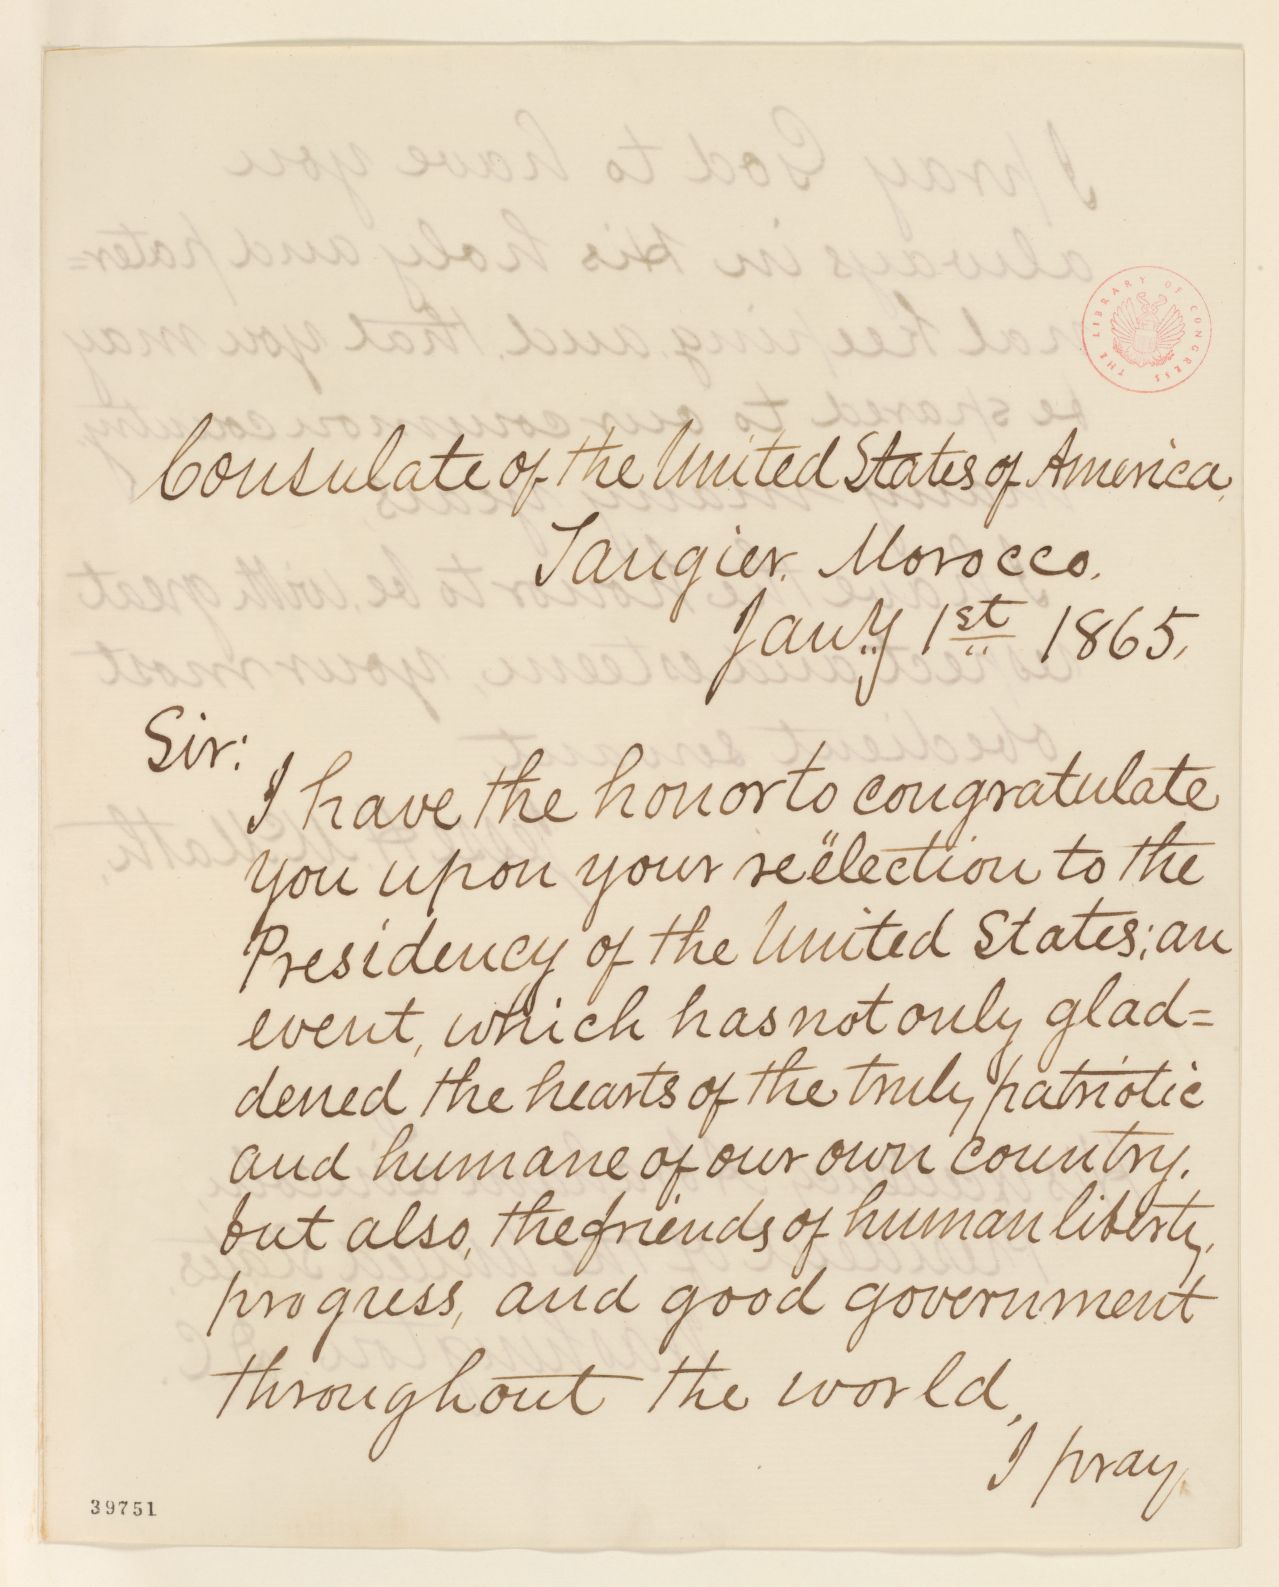 THE LIBRARY OF CONGRESS
Consulate of the United States of America,
Tangier. Morocco.
Janʸ 1st 1865.
Sir:
I have the honor to congratulate
you upon your reëlection to the
Presidency of the United States; an
event, which has not only glad=
dened the hearts of the truly patriotic
and humane of our own country,
but also, the friends of human liberty,
progress, and good government
throughout the world.
I pray
39751